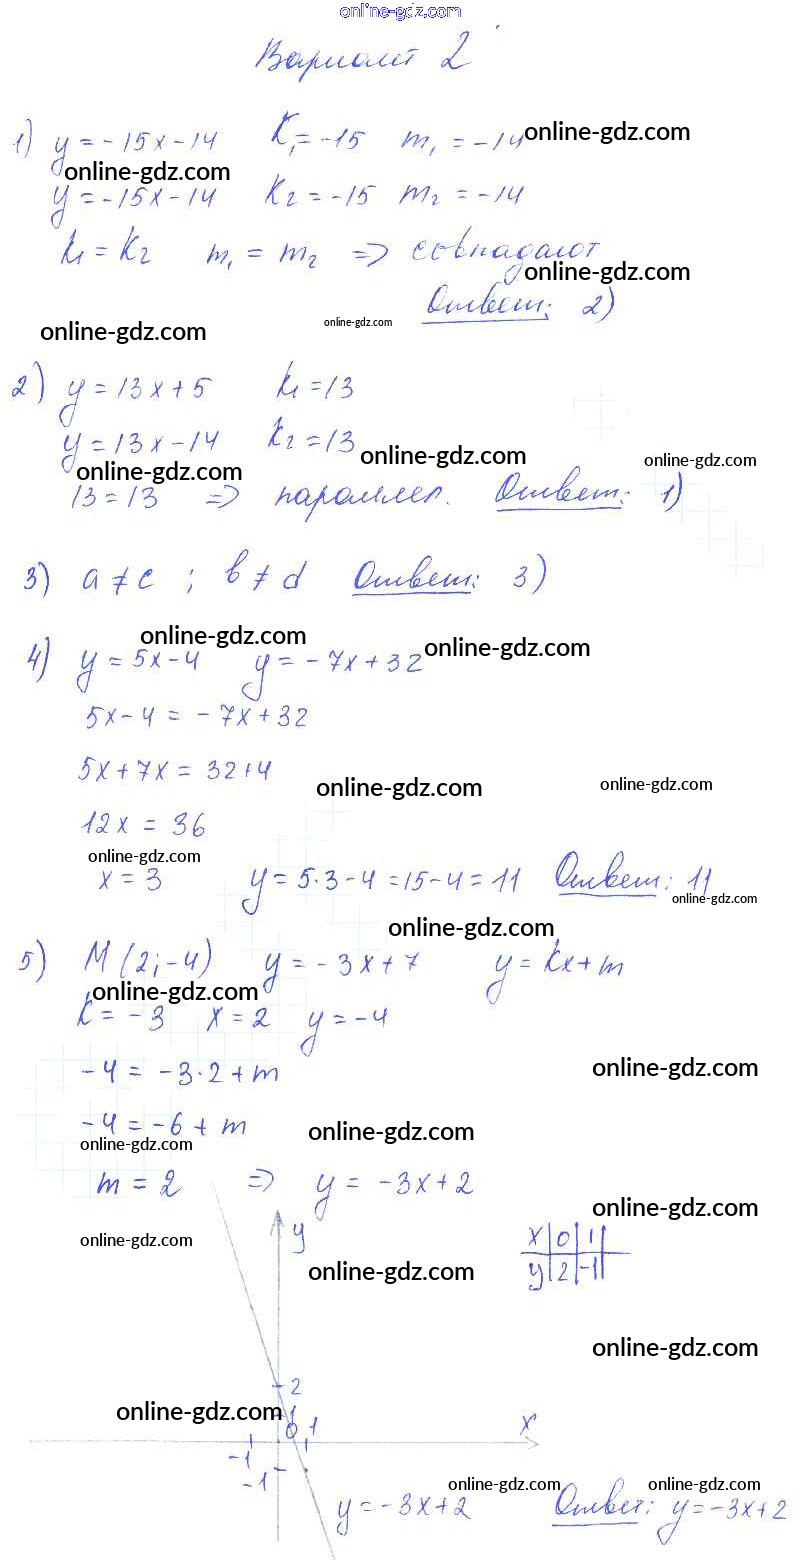 online-gdz.com
Вариант 2
1) y = -15x - 14 K₁ = -15 m₁ = -14 online-gdz.com
online-gdz.com
y = -15x - 14 K₂ = -15 m₂ = -14
k₁ = k₂ m₁ = m₂ => совпадают
online-gdz.com
Ответ: 2)
online-gdz.com online-gdz.com
2) y = 13x + 5 k₁ = 13
y = 13x - 14 k₂ = 13 online-gdz.com online-gdz.com
online-gdz.com
13 = 13 => параллел. Ответ: 1)
3) a ≠ c ; b ≠ d Ответ: 3)
online-gdz.com online-gdz.com
4) y = 5x - 4 y = -7x + 32
5x - 4 = -7x + 32
5x + 7x = 32 + 4
online-gdz.com online-gdz.com
12x = 36
online-gdz.com
x = 3 y = 5·3 - 4 = 15 - 4 = 11 Ответ: 11
online-gdz.com
online-gdz.com
5) M (2; -4) y = -3x + 7 y = kx + m
online-gdz.com
k = -3 x = 2 y = -4
-4 = -3·2 + m online-gdz.com
-4 = -6 + m online-gdz.com
online-gdz.com
m = 2 => y = -3x + 2
online-gdz.com
online-gdz.com y x 0 1
online-gdz.com y 2 -1
online-gdz.com
2
online-gdz.com 1
0 1 x
-1
-1 online-gdz.com online-gdz.com
y = -3x + 2 Ответ: y = -3x + 2